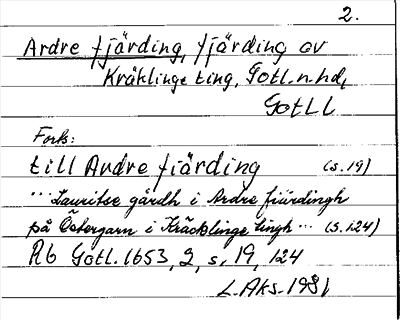 2.
Ardre fjärding, fjärding av
Kräklinge ting, Gotl. n. hd,
Gotl L
Forts:
till Ardre fiärding (s. 19)
"... Lauritse gårdh i Ardre fiärdingh
på Östergarn i Kräcklinge tingh ... (s. 124)
Rb Gotl. 1653, 2, s. 19, 124
L. Aks. 1981